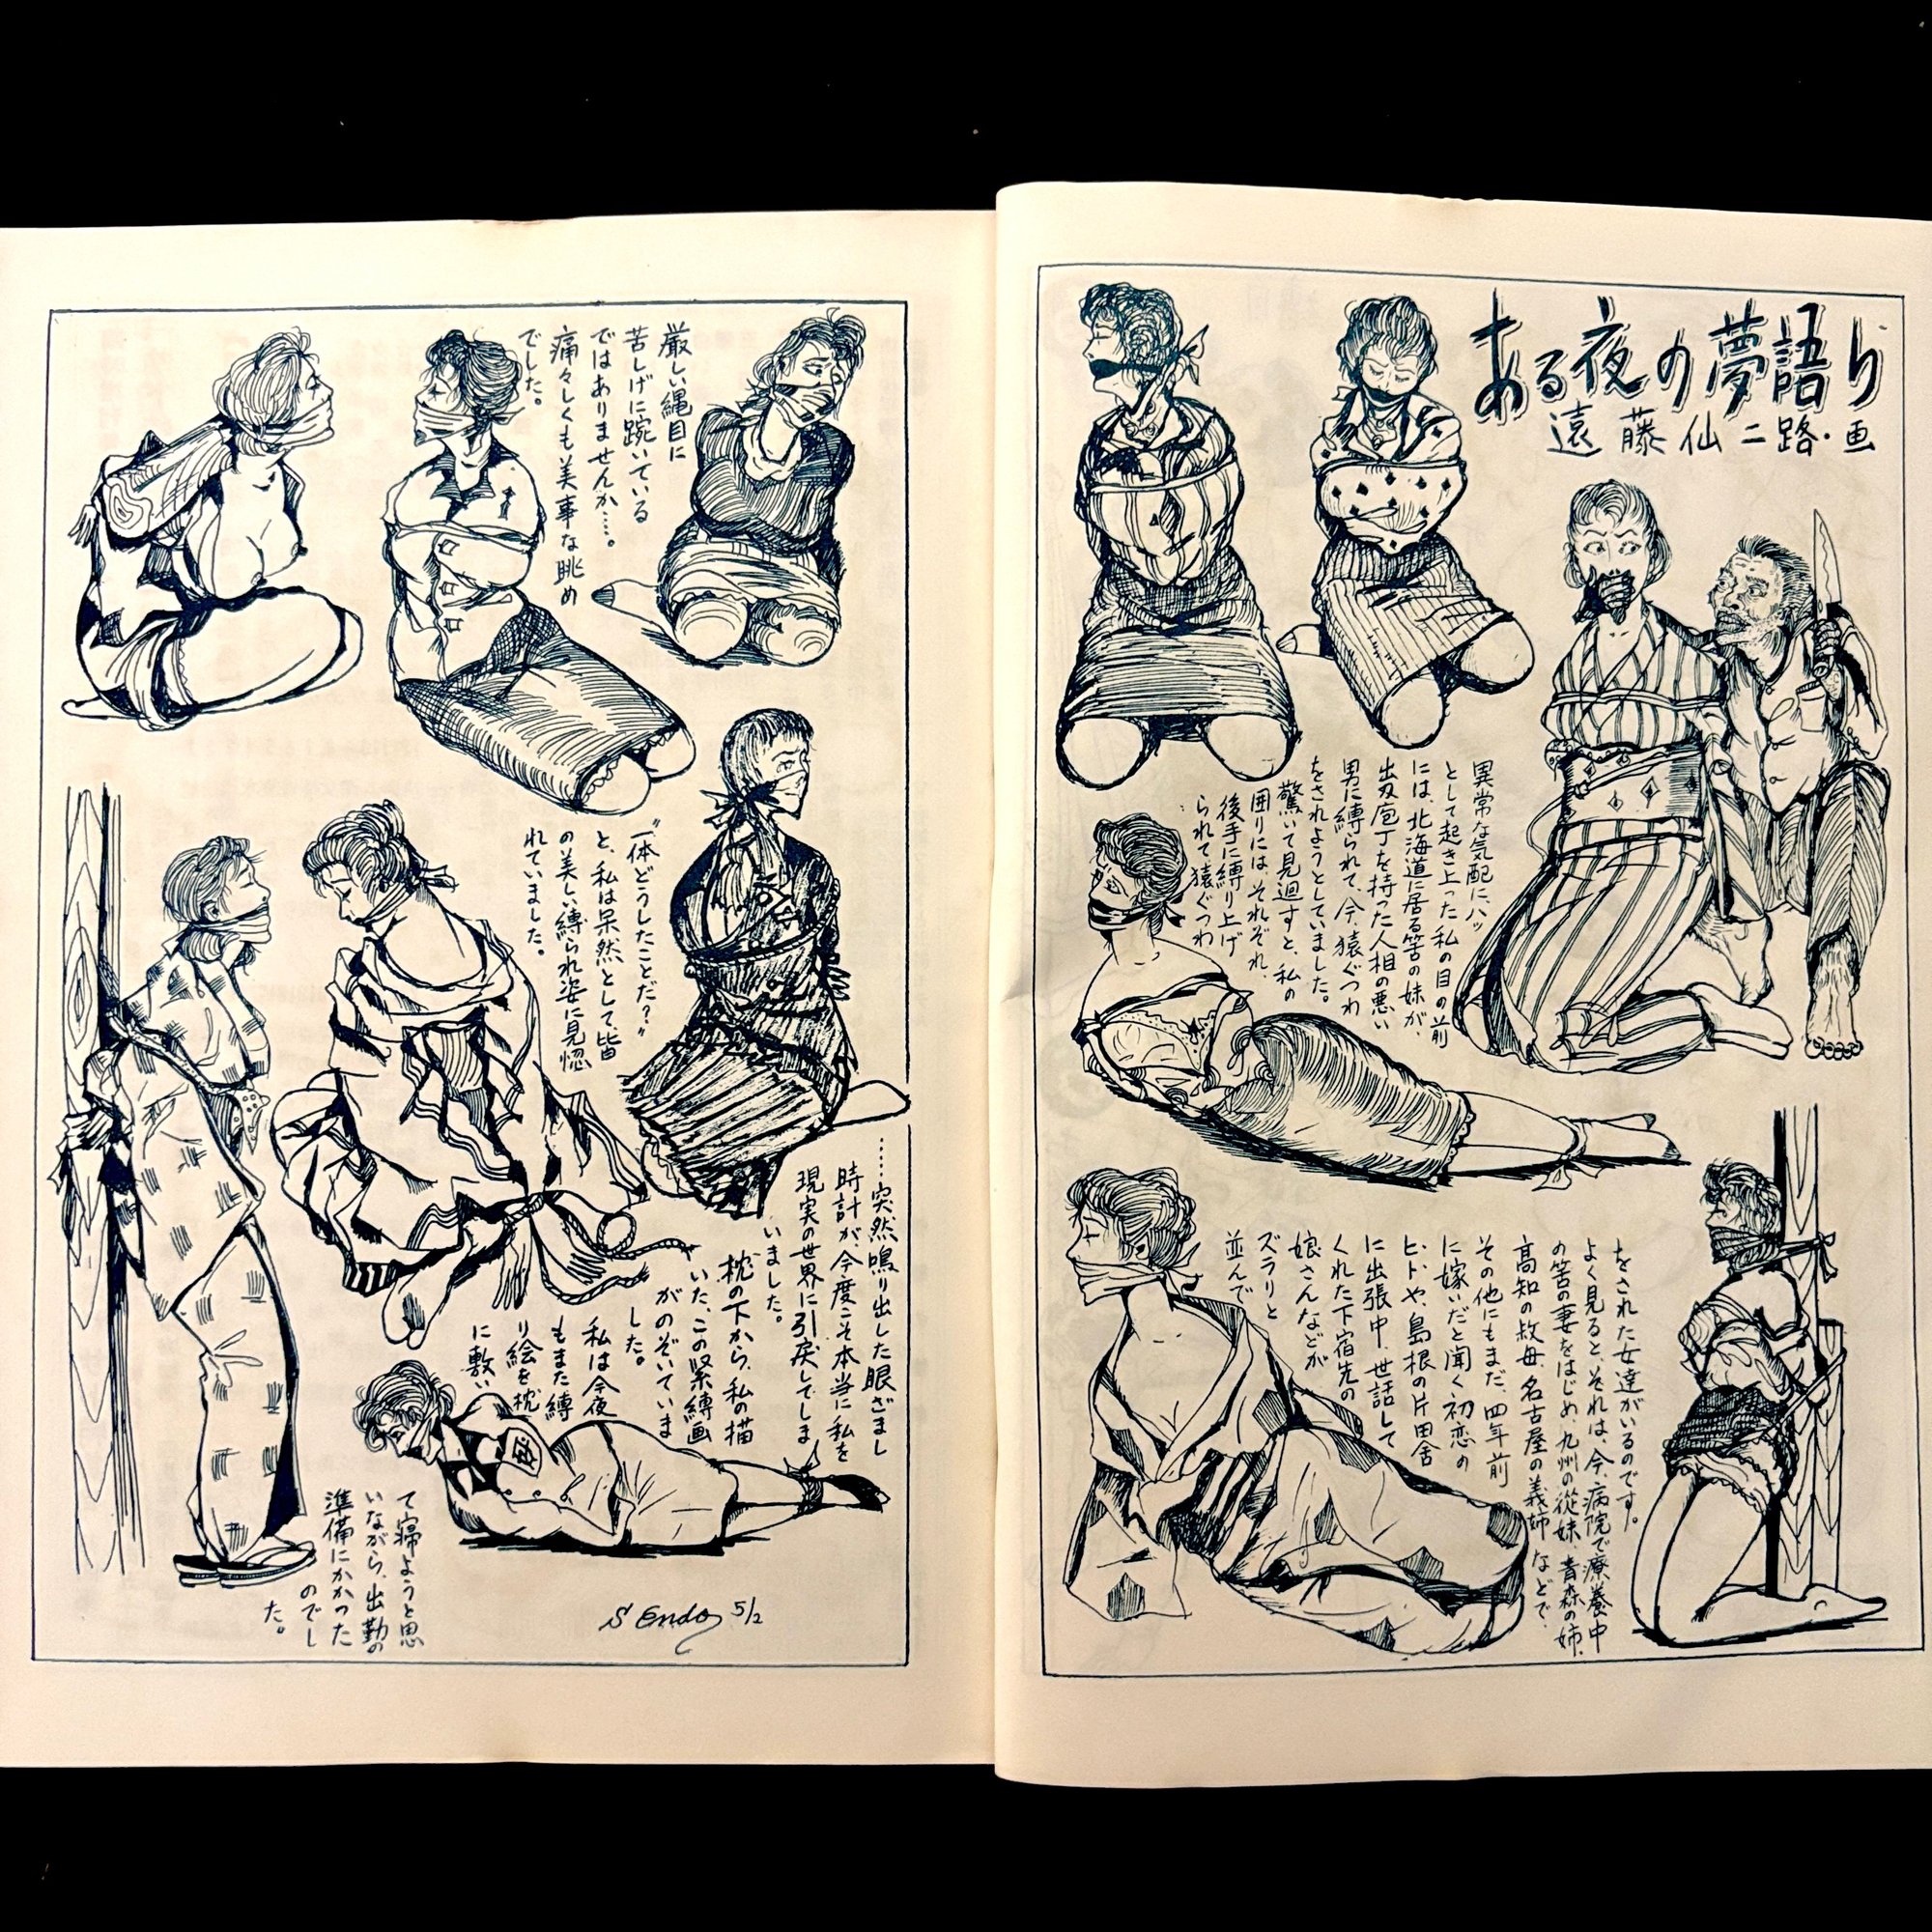 ある夜の夢語り
遠藤仙二路・画
異常な気配に、ハッ
として起き上った私の目の前
には、北海道に居る筈の妹が、
出刃庖丁を持った人相の悪い
男に縛られて、今、猿ぐつわ
をされようとしていました。
驚いて見廻すと、私の
囲りには、それぞれ、
後手に縛り上げ
られて猿ぐつわ
をされた女達がいるのです。
よく見ると、それは、今、病院で療養中
の筈の妻をはじめ、九州の従妹、青森の姉、
高知の叔母、名古屋の義姉などで、
その他にもまだ、四年前
に嫁いだと聞く初恋の
ヒトや、島根の片田舎
に出張中、世話して
くれた下宿先の
娘さんなどが
ズラリと
並んで
厳しい縄目に
苦しげに踠いている
ではありませんか……。
痛々しくも美事な眺め
でした。
“一体どうしたことだ？”
と、私は呆然として、皆
の美しい縛られ姿に見惚
れていました。
……突然鳴り出した眼ざまし
時計が、今度こそ本当に私を
現実の世界に引戻してしま
いました。
枕の下から、私の描
いた、この緊縛画
がのぞいていま
した。
私は今夜
もまた縛
り絵を枕
に敷い
て寝ようと思
いながら、出勤の
準備にかかった
のでし
た。
S Endo 5/2